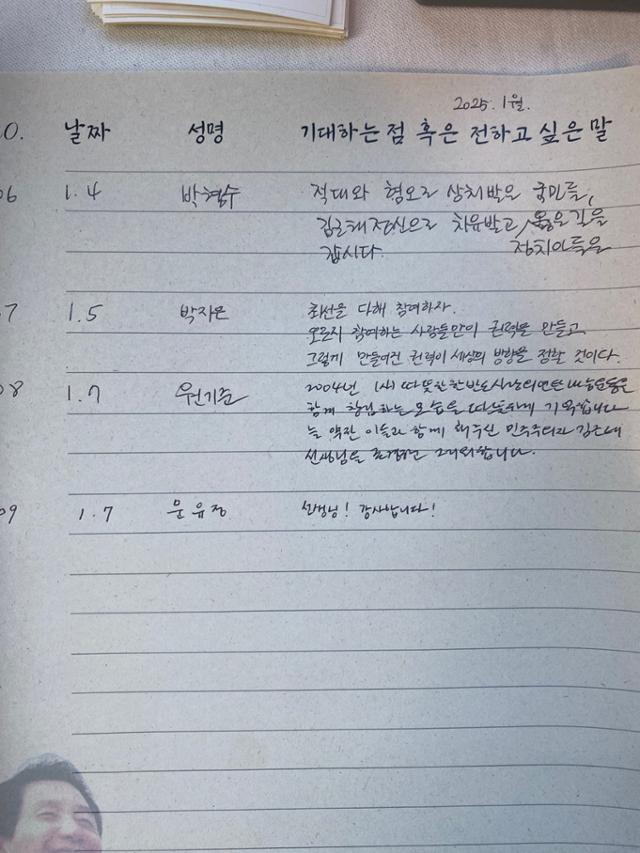 2025. 1월.
O. 날짜 성명 기대하는 점 혹은 전하고 싶은 말
06 1.4 박현수 적대와 혐오로 상처받은 국민들,
김근태정신으로 치유받고, 옳은길을
갑시다. 정치인들을
07 1.5 박자은 최선을 다해 참여하자.
오로지 참여하는 사람들만이 권력을 만들고,
그렇게 만들어진 권력이 세상의 방향을 정할 것이다.
08 1.7 원기준 2004년 (사) 따뜻한한반도사랑의연탄나눔운동을
함께 창립하는 모습을 따뜻하게 기억합니다
늘 약자 이들과 함께 해주신 민주주의자 김근태
선생님을 그리워합니다.
09 1.7 윤유정 선생님! 감사합니다!